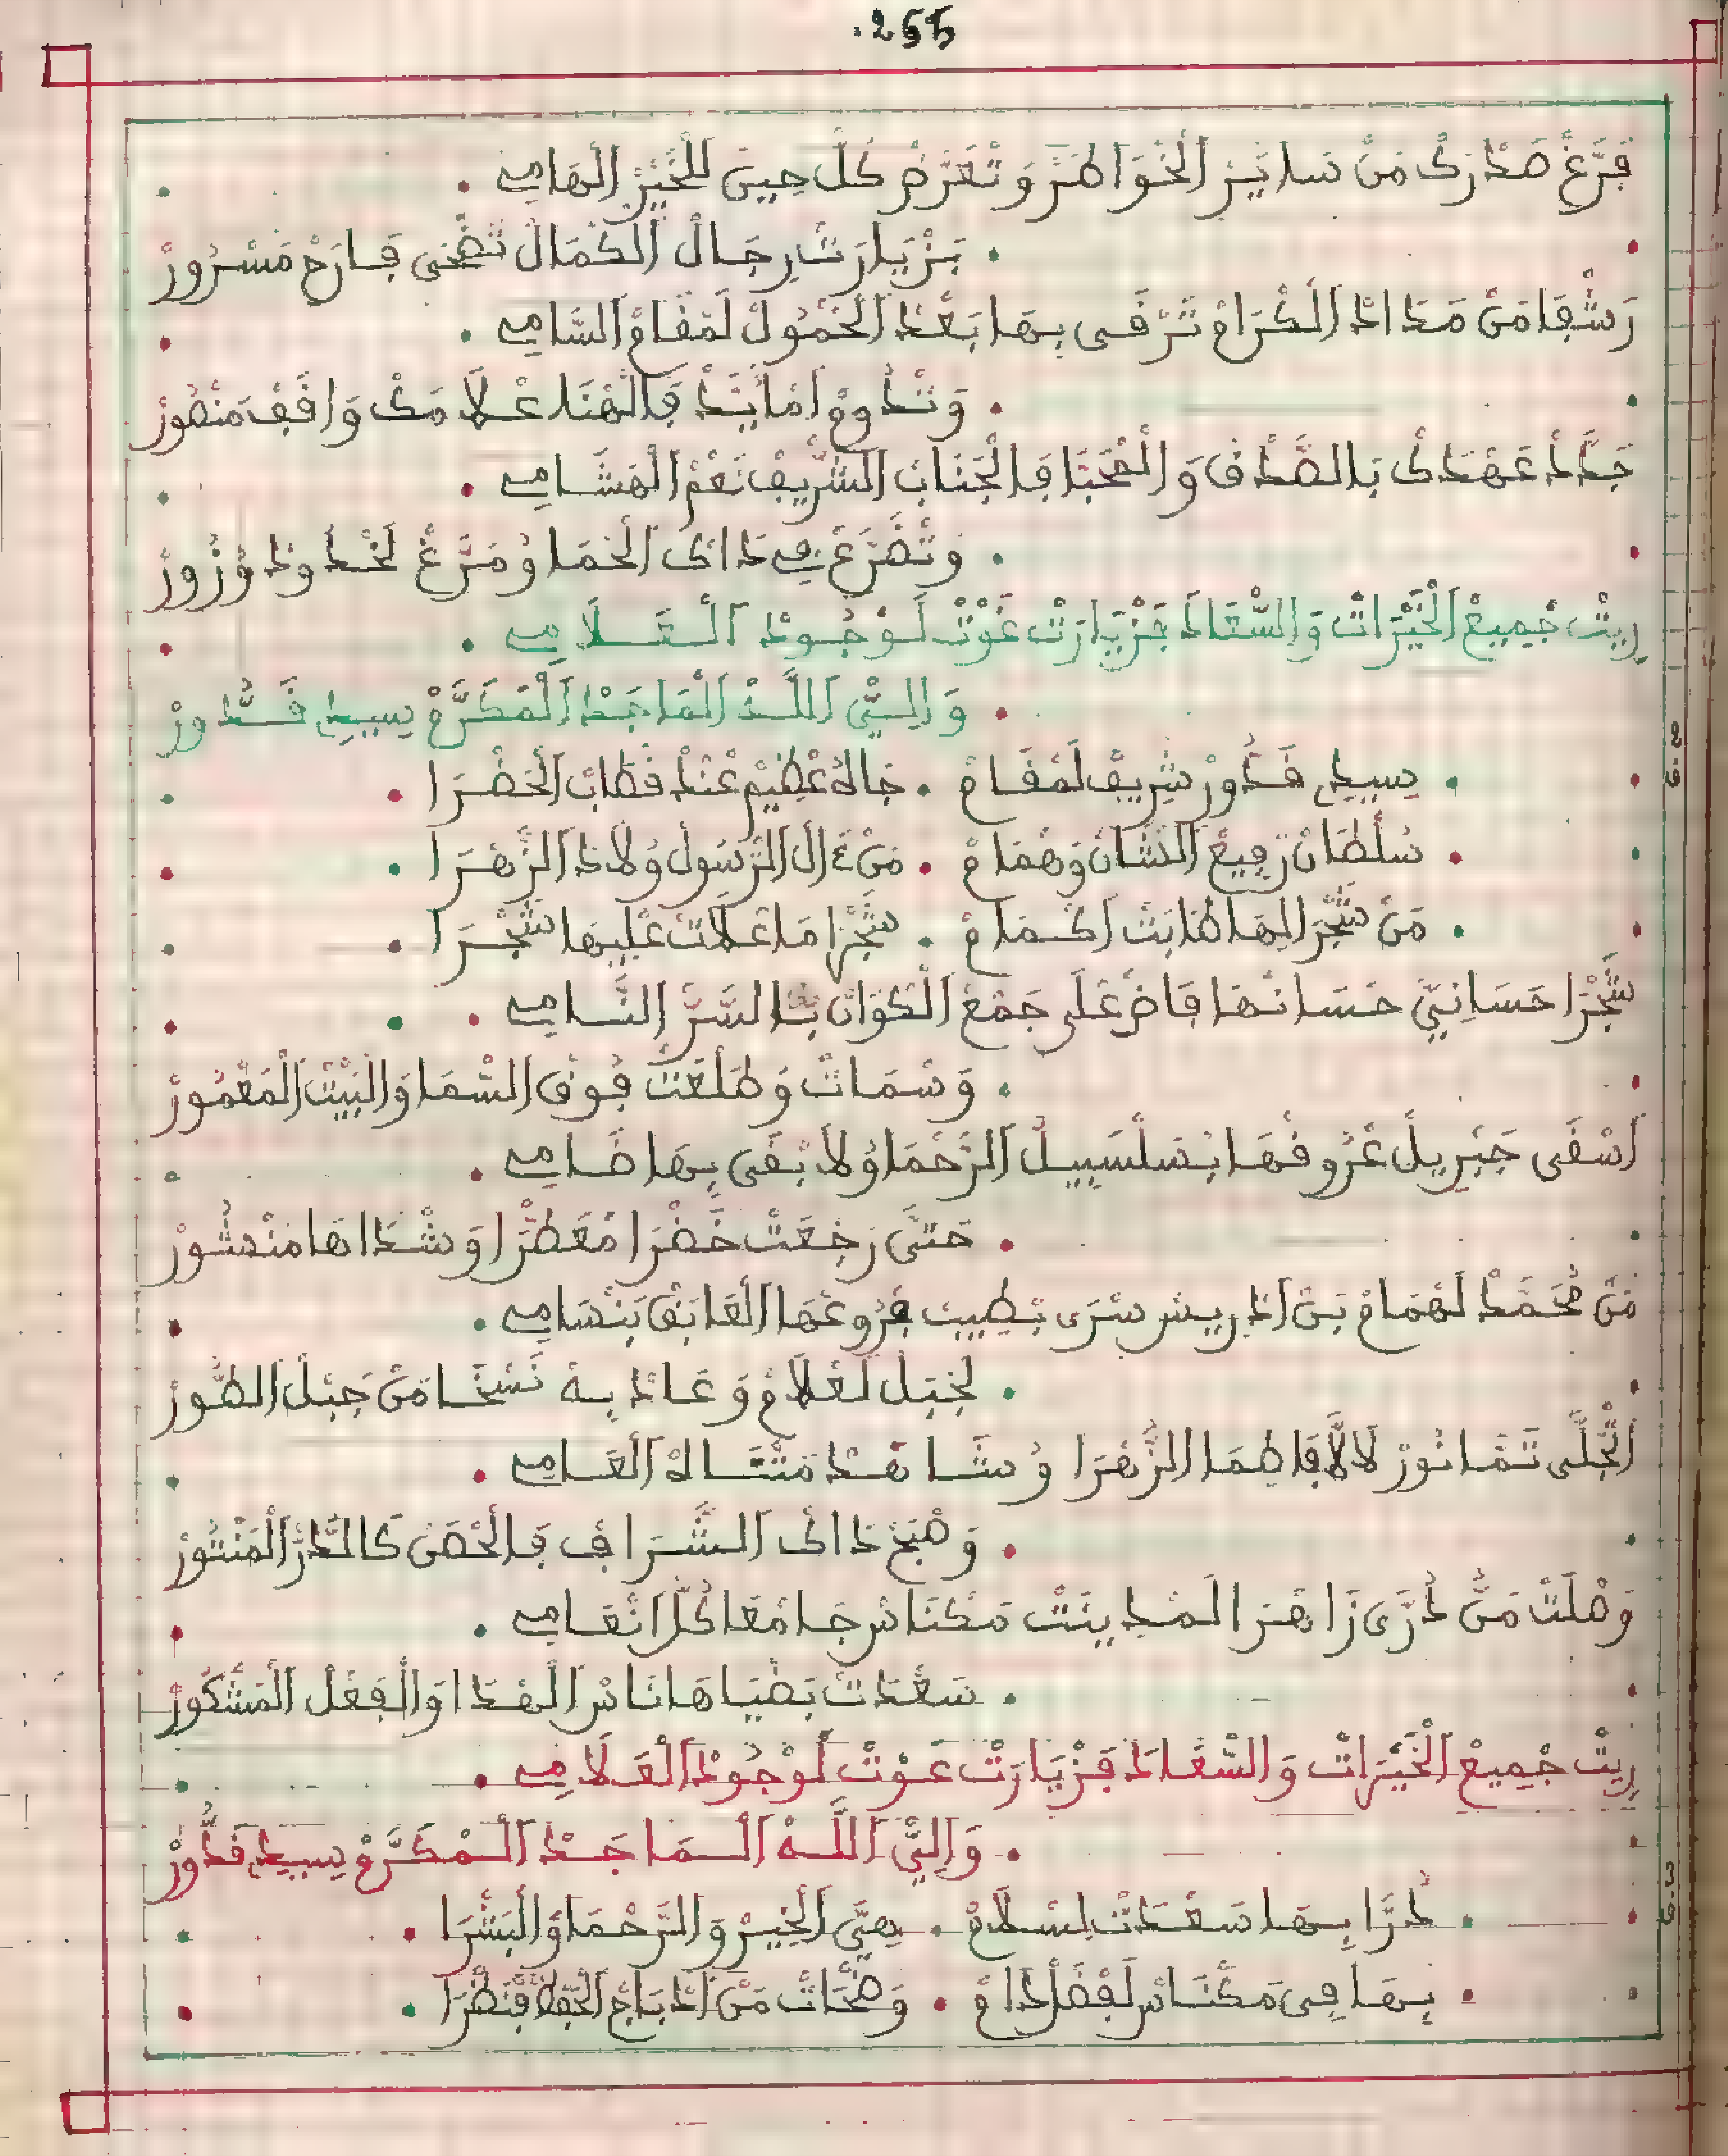 .255
فَرَّغْ صَدْرَكْ مَنْ سَايَرْ الْخْوَاطَرْ وَتْعَرَّضْ كُلّ حِينْ لْلْخَيْرْ الْهَامِي
بَزْيَارَتْ رِجَالْ الْكْمَالْ تَضْحَى فَارَحْ مَسْرُورْ
رَشْفَا مَنْ مَدَادْ الْكْرَامْ تَرْقَى بِهَا بَعْدْ الْخْمُولْ لَمْقَامْ السَّامِي
وَتْدُومْ امَايَدْ فَالْهْنَا عْلَامَكْ وَاقَفْ مَنْصُورْ
جَدَّدْ عَهْدَكْ بَالصَّدْقْ وَالْمْحَبَّا فَالْجَنَابْ الشْرِيفْ نَعْمْ الْهَشَامِي
وَتْضَرَّعْ فِي دَاكْ الْحْمَا وُمَرَّغْ لَخْدُودْ وْزُورْ
رِيتْ جْمِيعْ الْخَيْرَاتْ وَالسّْعَادَ فَزْيَارَتْ غَوْتْ لَوْجُودْ الْعَلَامِي
وَالِيّ اللَّهْ الْمَاجَدْ الْمْكَرَّمْ سِيدِي قَدُّورْ
سِيدِي قَدُّورْ شْرِيفْ لَمْقَامْ . جَاهُ عْظِيمْ عَنْدْ قْطَابْ الْحَضْرَا
سُلْطَانْ رْفِيعْ الشَّانْ وَهْمَامْ . مَنْ ءَالْ الرَّسُولْ وُلَادْ الزَّهْرَا
مَنْ شَجْرَا لِهَا طَابَتْ اكْمَامْ . شَجْرَا مَا عْلَاتْ عْلِيهَا شَجْرَا
شَجْرَا حَسَانِيَّ حْسَانْهَا فَاضْ عْلَى جَمْعْ الْكْوَانْ بَالسَّرّ النَّامِي
وَسْمَاتْ وَطَلْعَتْ فُوقْ السّْمَا وَالْبَيْتْ الْمَعْمُورْ
اسْقَى جَبْرِيلْ عْرُوقْهَا بْسَلْسَبِيلْ الرَّحْمَا وُلَا بْقَى بِهَا ظَامِي
حَتَّى رَجْعَتْ خَضْرَا مْعَطّْرَا وَشْدَاهَا مَنْشُورْ
مَنْ مُحَمَّدْ لَهْمَامْ بَنْ ادْرِيسْ سْرَى بْطِيبْ فْرُوعْهَا الْعَابَقْ بَنْسَامِي
لَجْبَلْ لَعْلَامْ وَعَادْ بِهْ نَسْخَا مَنْ جْبَلْ الطُّورْ
اتْجَلَّى تَمَّا نُورْ لَالَّا فَاطِمَا الزَّهْرَا وُشَاهَدْ مَنْتَاهْ الْعَامِي
وَصْبَحْ دَاكْ الشَّرَافْ فَالْحْصَنْ كَالدُّرّ الْمَنْتُورْ
وَصْلَتْ مَنُّ دُرَّى زَاهْرَا لَمْدِينَتْ مَكْنَاسْ جَامْعَا كُلّ انْعَامِي
سَعْدَتْ بَضْيَاهَا نَاسْ الْهْدَا وَالْفَعْلْ الْمَشْكُورْ
رِيتْ جْمِيعْ الْخَيْرَاتْ وَالسّْعَادَ فَزْيَارَتْ غَوْتْ لَوْجُودْ الْعَلَامِي
وَالِيّ اللَّهْ الْمَاجَدْ الْمْكَرَّمْ سِيدِي قَدُّورْ
دُرَّا بِهَا سَعْدَتْ لِسْلَامْ . هِيَّ الْخَيْرْ وَالرَّحْمَا وَالْبَشْرَا
بِهَا فِي مَكْنَاسْ لَفْضَلْ دَامْ . وَضْحَاتْ مَنْ ادْبَاجْ